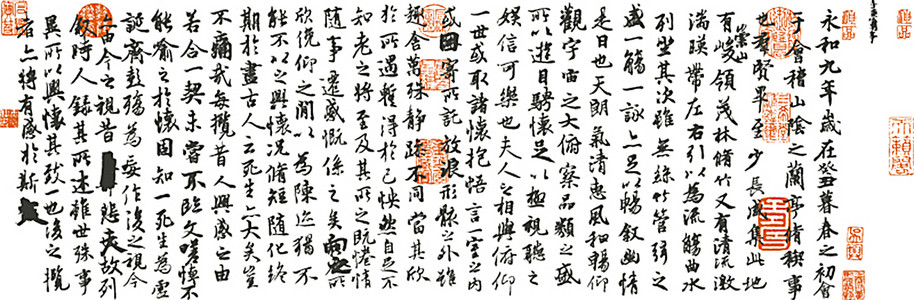 永和九年歲在癸丑暮春之初會
于會稽山陰之蘭亭脩稧事
也羣賢畢至少長咸集此地
有崇山峻領茂林脩竹又有清流激
湍暎帶左右引以為流觴曲水
列坐其次雖無絲竹管弦之
盛一觴一詠亦足以暢叙幽情
是日也天朗氣清惠風和暢仰
觀宇宙之大俯察品類之盛
所以遊目騁懷足以極視聽之
娛信可樂也夫人之相與俯仰
一世或取諸懷抱悟言一室之內
或因寄所託放浪形骸之外雖
趣舍萬殊靜躁不同當其欣
於所遇蹔得於己怏然自足不
知老之將至及其所之既惓情
隨事遷感慨係之矣向之所
欣俛仰之閒以為陳迹猶不
能不以之興懷況脩短隨化終
期於盡古人云死生亦大矣豈
不痛哉每攬昔人興感之由
若合一契未嘗不臨文嗟悼不
能喻之於懷固知一死生為虛
誕齊彭殤為妄作後之視今
亦由今之視昔悲夫故列
敘時人錄其所述雖世殊事
異所以興懷其致一也後之攬
者亦將有感於斯